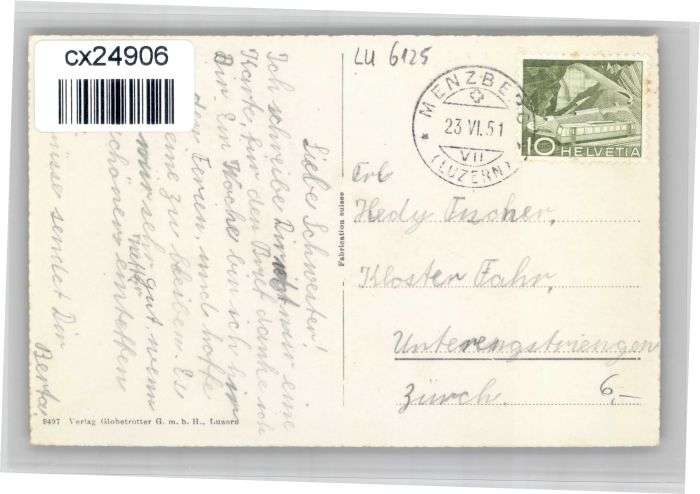 cx24906
LU 6125
MENZBERG
23.VI.51
VII
(LUZERN)
10 HELVETIA
Liebe Schwester!
Ich schreibe Dir nur eine
Karte, für den Brief danke ich
Dir. Ein Woche bin ich hier
den Ferien, und hoffe
eine zu bleiben. Es
mir sehr gut wenn
schönem eintreffen
sendet Dir
Berta
Fabrication suisse
Frl
Hedy Fischer,
Kloster Fahr,
Unterengstringen
Zürich.
6,-
9497 Verlag Globetrotter G. m. b. H., Luzern